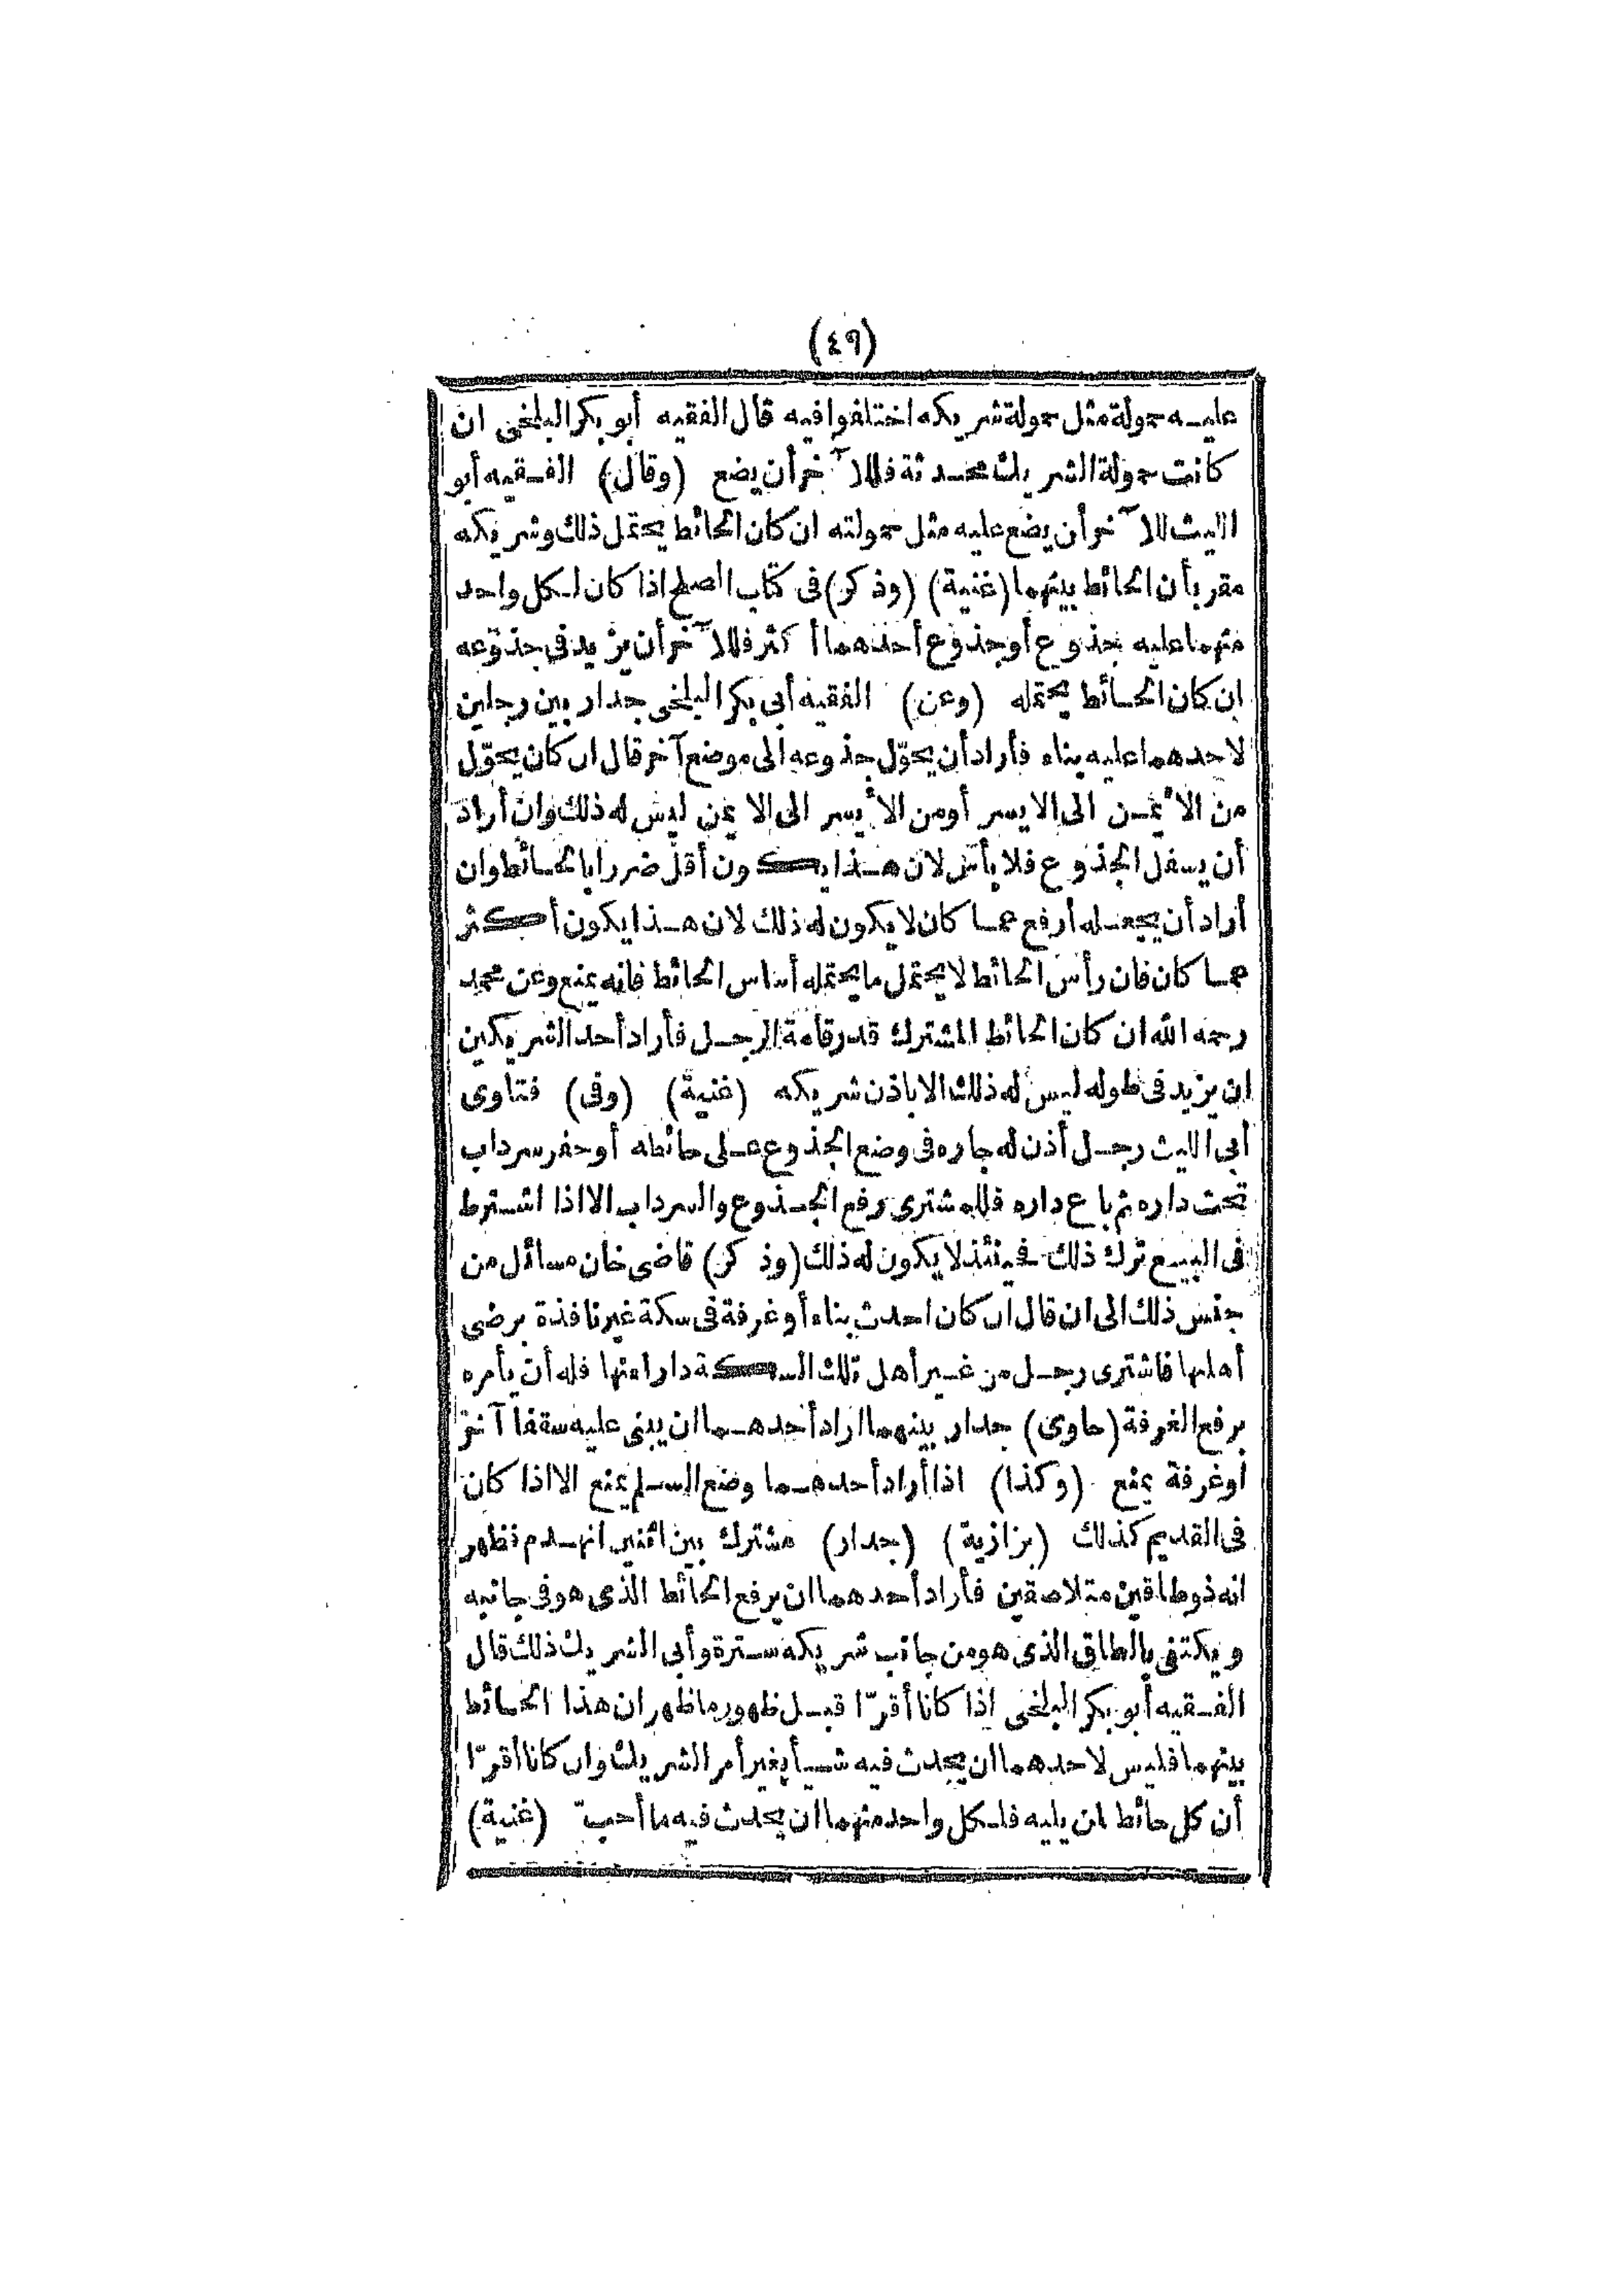 (٤٩)
عليه حمولة مثل حمولة شريكه اختلفوا فيه قال الفقيه أبو بكر البلخى ان
كانت حمولة الشريك محدثة فللآخر أن يضع (وقال) الفقيه أبو
الليث للآخر أن يضع عليه مثل حمولته ان كان الحائط يحتمل ذلك وشريكه
مقر بأن الحائط بينهما (غنية) (وذكر) فى كتاب الصلح اذا كان لكل واحد
منهما عليه جذوع أو جذوع أحدهما أكثر فللآخر أن يزيد فى جذوعه
ان كان الحائط يحتمله (وعن) الفقيه أبى بكر البلخى جدار بين رجلين
لاحدهما عليه بناء فأراد أن يحوّل جذوعه الى موضع آخر قال ان كان يحوّل
من الأيمن الى الايسر أو من الأيسر الى الايمن ليس له ذلك وان أراد
أن يسفل الجذوع فلا بأس لان هذا يكون أقل ضررا بالحائط وان
أراد أن يجعله أرفع مما كان لا يكون له ذلك لان هذا يكون أكثر
مما كان فان رأس الحائط لا يحتمل ما يحتمله أساس الحائط فانه يمنع وعن محمد
رحمه الله ان كان الحائط المشترك قدر قامة الرجل فأراد أحد الشريكين
ان يزيد فى طوله ليس له ذلك الا باذن شريكه (غنية) (وفى) فتاوى
أبى الليث رجل أذن له جاره فى وضع الجذوع على حائطه أو حفر سرداب
تحت داره ثم باع داره فللمشترى رفع الجذوع والسرداب الا اذا اشترط
فى البيع ترك ذلك فحينئذ لا يكون له ذلك (وذكر) قاضى خان مسائل من
جنس ذلك الى ان قال ان كان احدث بناء أو غرفة فى سكة غير نافذة برضى
أهلها فاشترى رجل من غير أهل تلك السكة دارا منها فله أن يأمره
برفع الغرفة (حاوى) جدار بينهما اراد أحدهما ان يبنى عليه سقفا آخر
اوغرفة يمنع (وكذا) اذا أراد أحدهما وضع السلم يمنع الا اذا كان
فى القديم كذلك (بزازية) (جدار) مشترك بين اثنين انهدم فظهر
انه ذو طاقين متلاصقين فأراد أحدهما ان يرفع الحائط الذى هو فى جانبه
ويكتفى بالطاق الذى هو من جانب شريكه سترة وأبى الشريك ذلك قال
الفقيه أبو بكر البلخى اذا كانا أقرّا قبل ظهور ما ظهر ان هذا الحائط
بينهما فليس لاحدهما ان يحدث فيه شيأ بغير أمر الشريك وان كانا أقرّا
أن كل حائط لمن يليه فلكل واحد منهما ان يحدث فيه ما أحبّ (غنية)